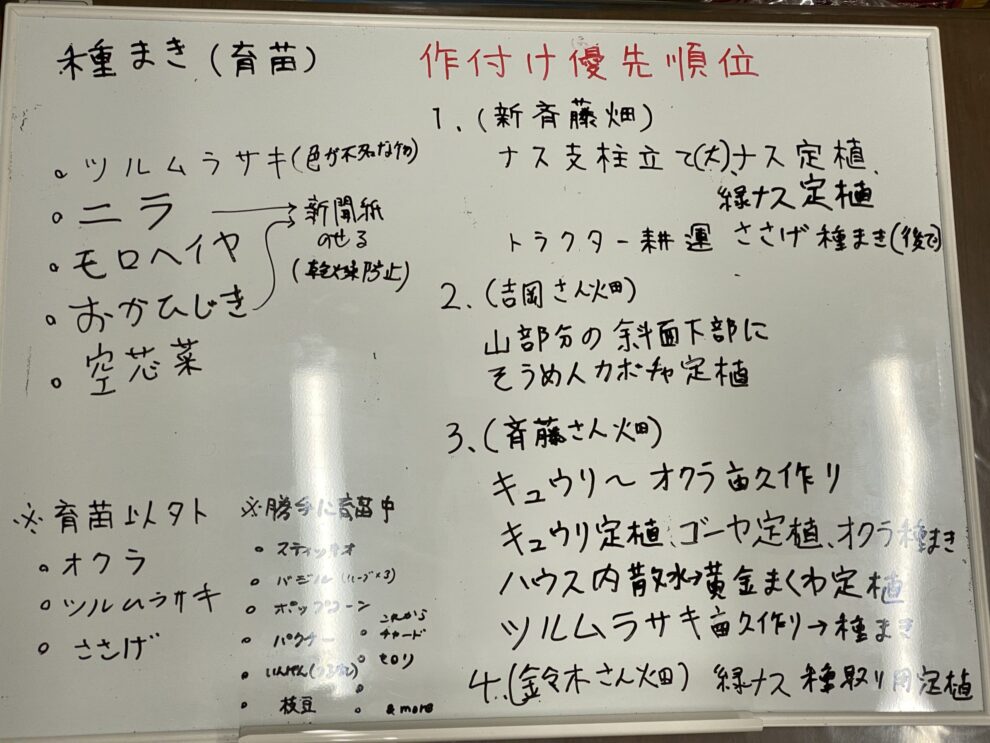 種まき(育苗)
。ツルムラサキ(色が不揃なやつ)
。ニラ → 新聞紙
のせる
(乾燥防止)
。モロヘイヤ
。おかひじき
。空芯菜
※育苗以外
。オクラ
。ツルムラサキ
。ささげ
※勝手に育苗中
。スティッキオ
。バジル(ハーブ×3)
。ポップコーン
。パクチー
。いんげん(つるなし)
。枝豆
これから
。チャード
。セロリ
。
。& more
作付け優先順位
1、(新斉藤畑)
ナス支柱立て(大)、ナス定植、
緑ナス定植
トラクター耕運 ささげ種まき(後で)
2、(吉岡さん畑)
山部分の斜面下部に
そうめんカボチャ定植
3、(斉藤さん畑)
キュウリ〜オクラ畝作り
キュウリ定植、ゴーヤ定植、オクラ種まき
ハウス内散水→黄金まくわ定植
ツルムラサキ畝作り→種まき
4、(鈴木さん畑) 緑ナス種取り用定植